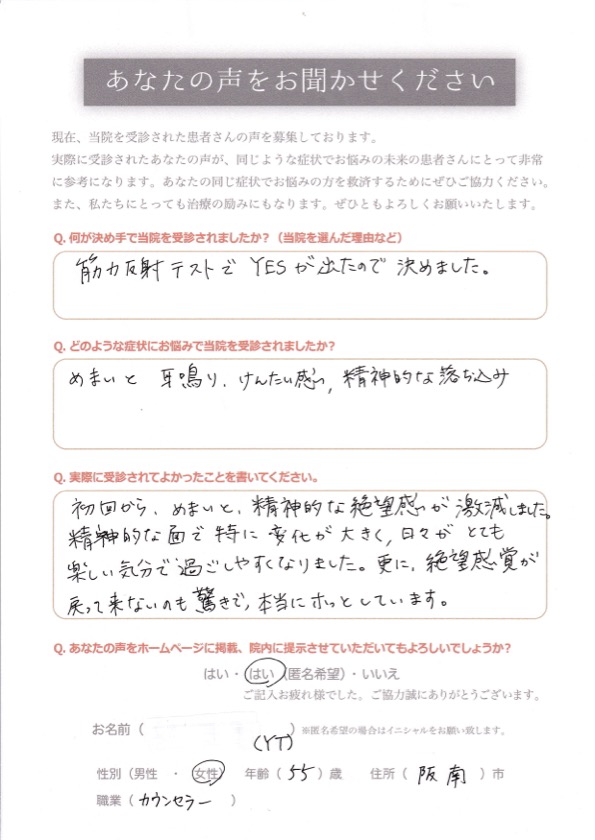 あなたの声をお聞かせください
現在、当院を受診された患者さんの声を募集しております。
実際に受診されたあなたの声が、同じような症状でお悩みの未来の患者さんにとって非常
に参考になります。あなたの同じ症状でお悩みの方を救済するためにぜひご協力ください。
また、私たちにとっても治療の励みにもなります。ぜひともよろしくお願いいたします。
Q. 何が決め手で当院を受診されましたか？（当院を選んだ理由など）
筋力反射テストで YESが出たので 決めました。
Q. どのような症状にお悩みで当院を受診されましたか？
めまいと 耳鳴り、けんたい感、精神的な落ち込み
Q. 実際に受診されてよかったことを書いてください。
初回から、めまいと、精神的な絶望感が激減しました。
精神的な面で特に変化が大きく、日々がとても
楽しい気分で過ごしやすくなりました。更に、絶望感覚が
戻って来ないのも驚きで、本当にホッとしています。
Q. あなたの声をホームページに掲載、院内に提示させていただいてもよろしいでしょうか？
はい・はい（匿名希望）・いいえ
ご記入お疲れ様でした。ご協力誠にありがとうございます。
お名前（ ）※匿名希望の場合はイニシャルをお願い致します。
(YT)
性別（男性 ・ 女性） 年齢（55）歳 住所（ 阪南 ）市
職業（ カウンセラー ）